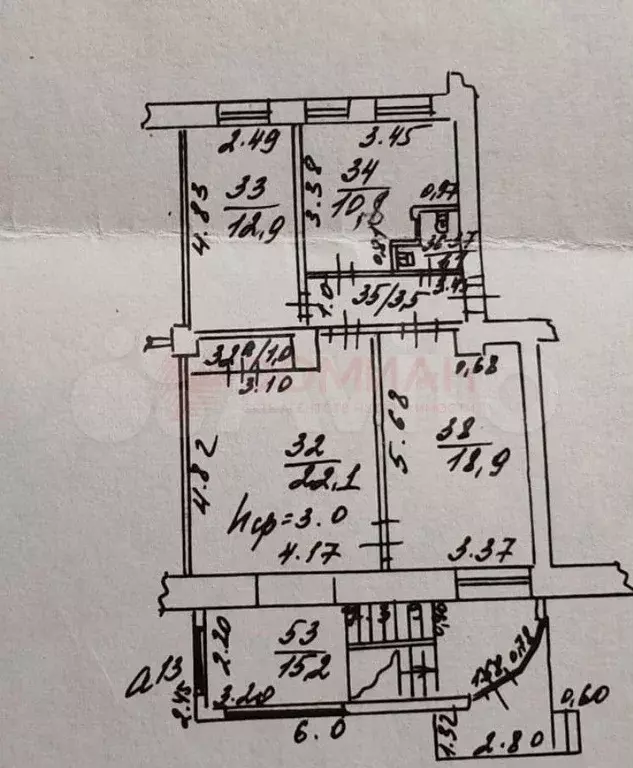 2.49
3.45
33
12,9
4.83
3.38
34
10,8
0,97
0,97
36
37
1.0
35/3,5
3.45
32а/1,0
3.10
0,68
4.82
32
22,1
5.68
38
18,9
hср=3.0
4.17
3.37
53
15,2
2.20
а13
2.45
3.20
6.0
1.58
0,78
1.32
2.80
0,60